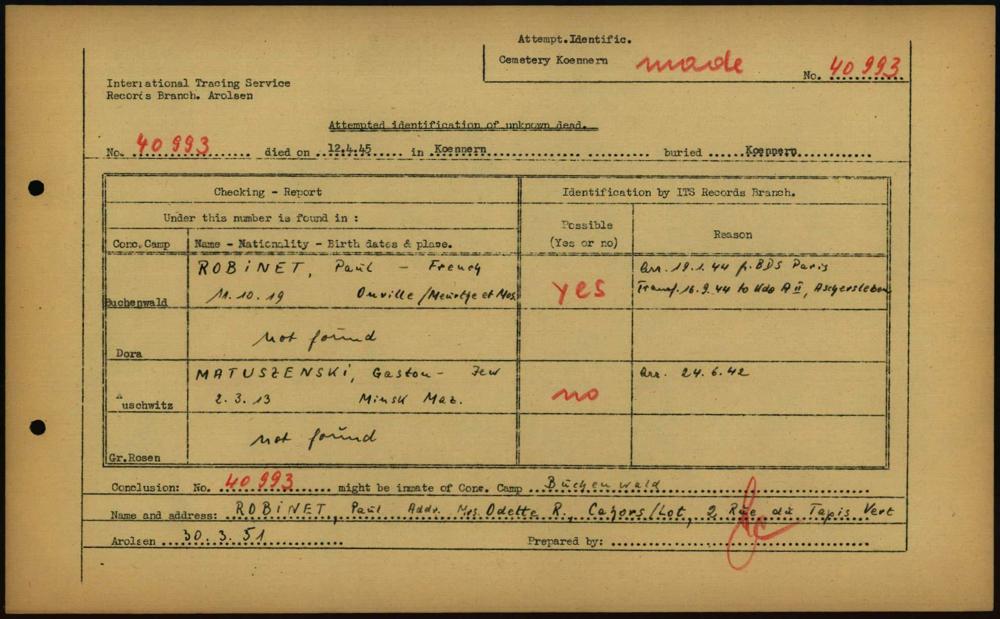 Attempt.Identific.
Cemetery Koennern made No. 40 993
International Tracing Service
Records Branch. Arolsen
Attempted identification of unknown dead.
No. 40 993 died on 12.4.45 in Koennern buried Koennern
Checking - Report Identification by ITS Records Branch.
Under this number is found in :
Possible
(Yes or no) Reason
Conc. Camp Name - Nationality - Birth dates & place.
ROBINET, Paul - French Arr. 19.1.44 f. BDS Paris
Buchenwald 11.10.19 Onville/Meurthe et Mos. yes Transf. 16.9.44 to Kdo A II, Aschersleben
Dora not found
MATUSZENSKI, Gaston - Jew Arr. 24.6.42
Auschwitz 2.3.13 Minsk Maz. no
Gr.Rosen not found
Conclusion: No. 40 993 might be inmate of Conc. Camp Buchenwald
Name and address: ROBINET, Paul Addr. Mrs. Odette R., Cahors/Lot, 2 Rue du Tapis Vert
Arolsen 30.3.51 Prepared by: